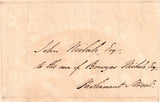 John Nichols Esq.
to the care of Bowyer Nichols Esq
Parliament Street.